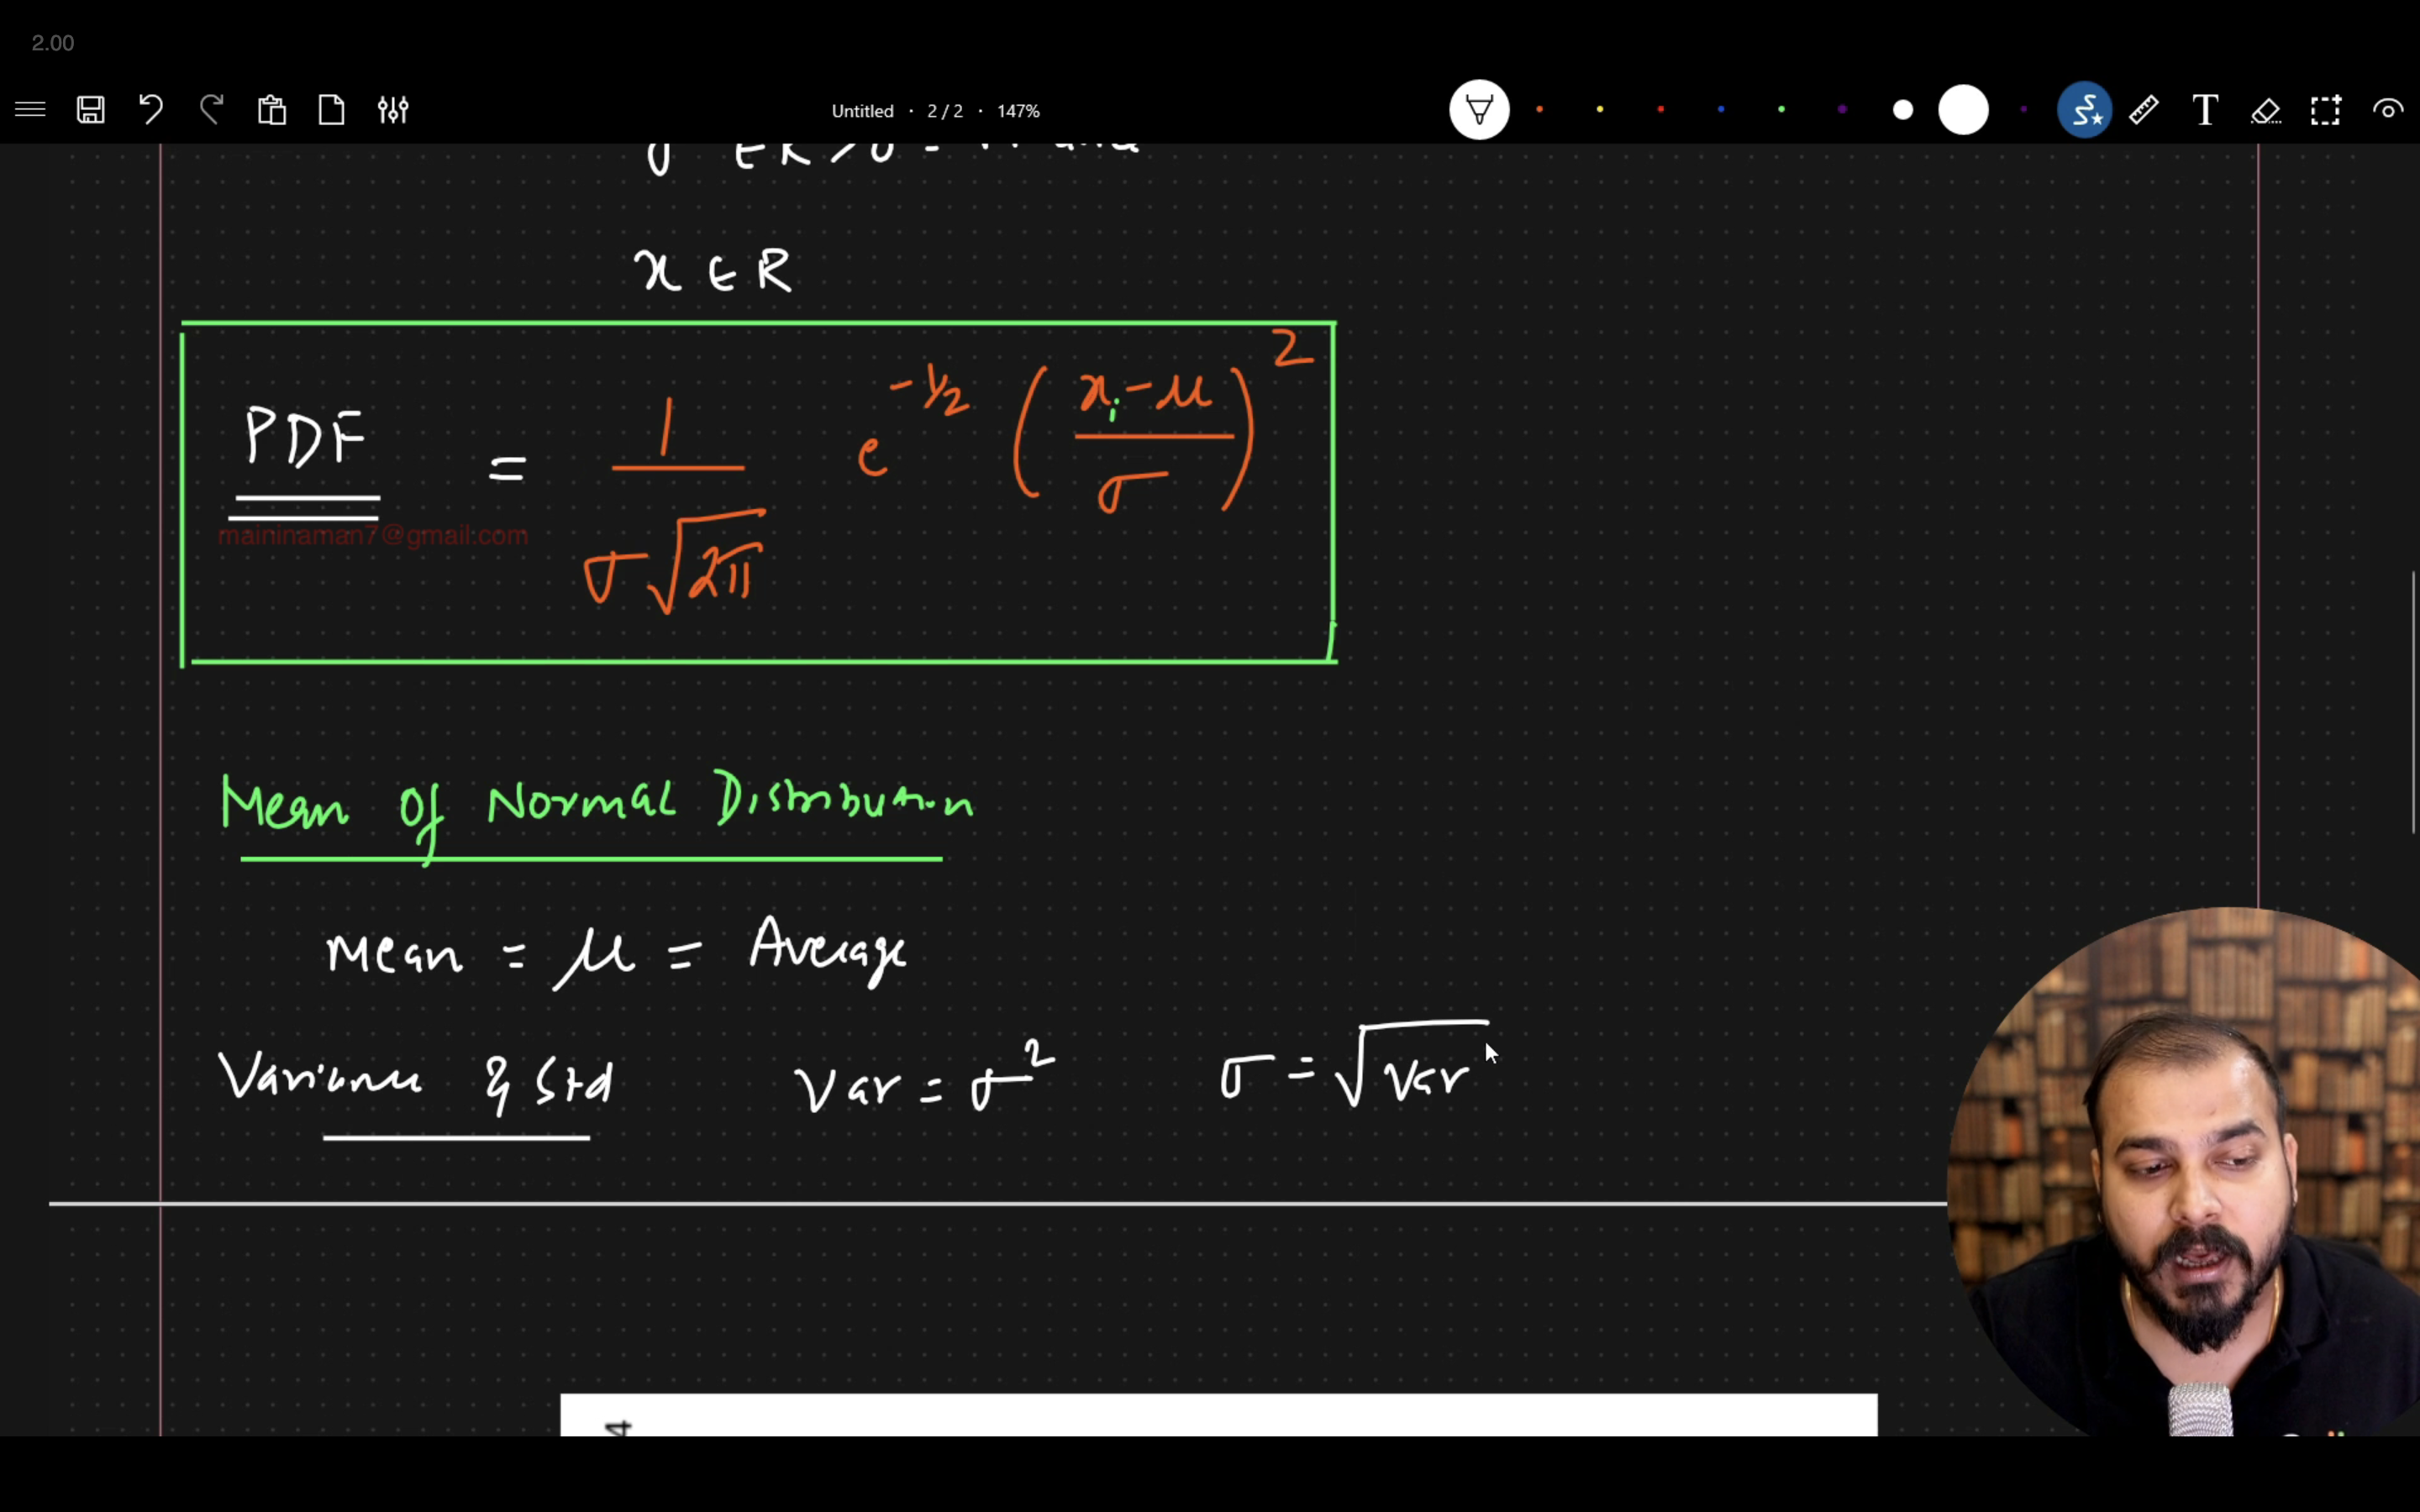 2.00
Untitled · 2 / 2 · 147%
x ∈ R
PDF = 1 / σ√2π e^-1/2 ( xi - μ / σ )^2
maininaman7@gmail.com
Mean Of Normal Distribution
Mean = μ = Average
Variance & Std Var = σ^2 σ = √Var
4